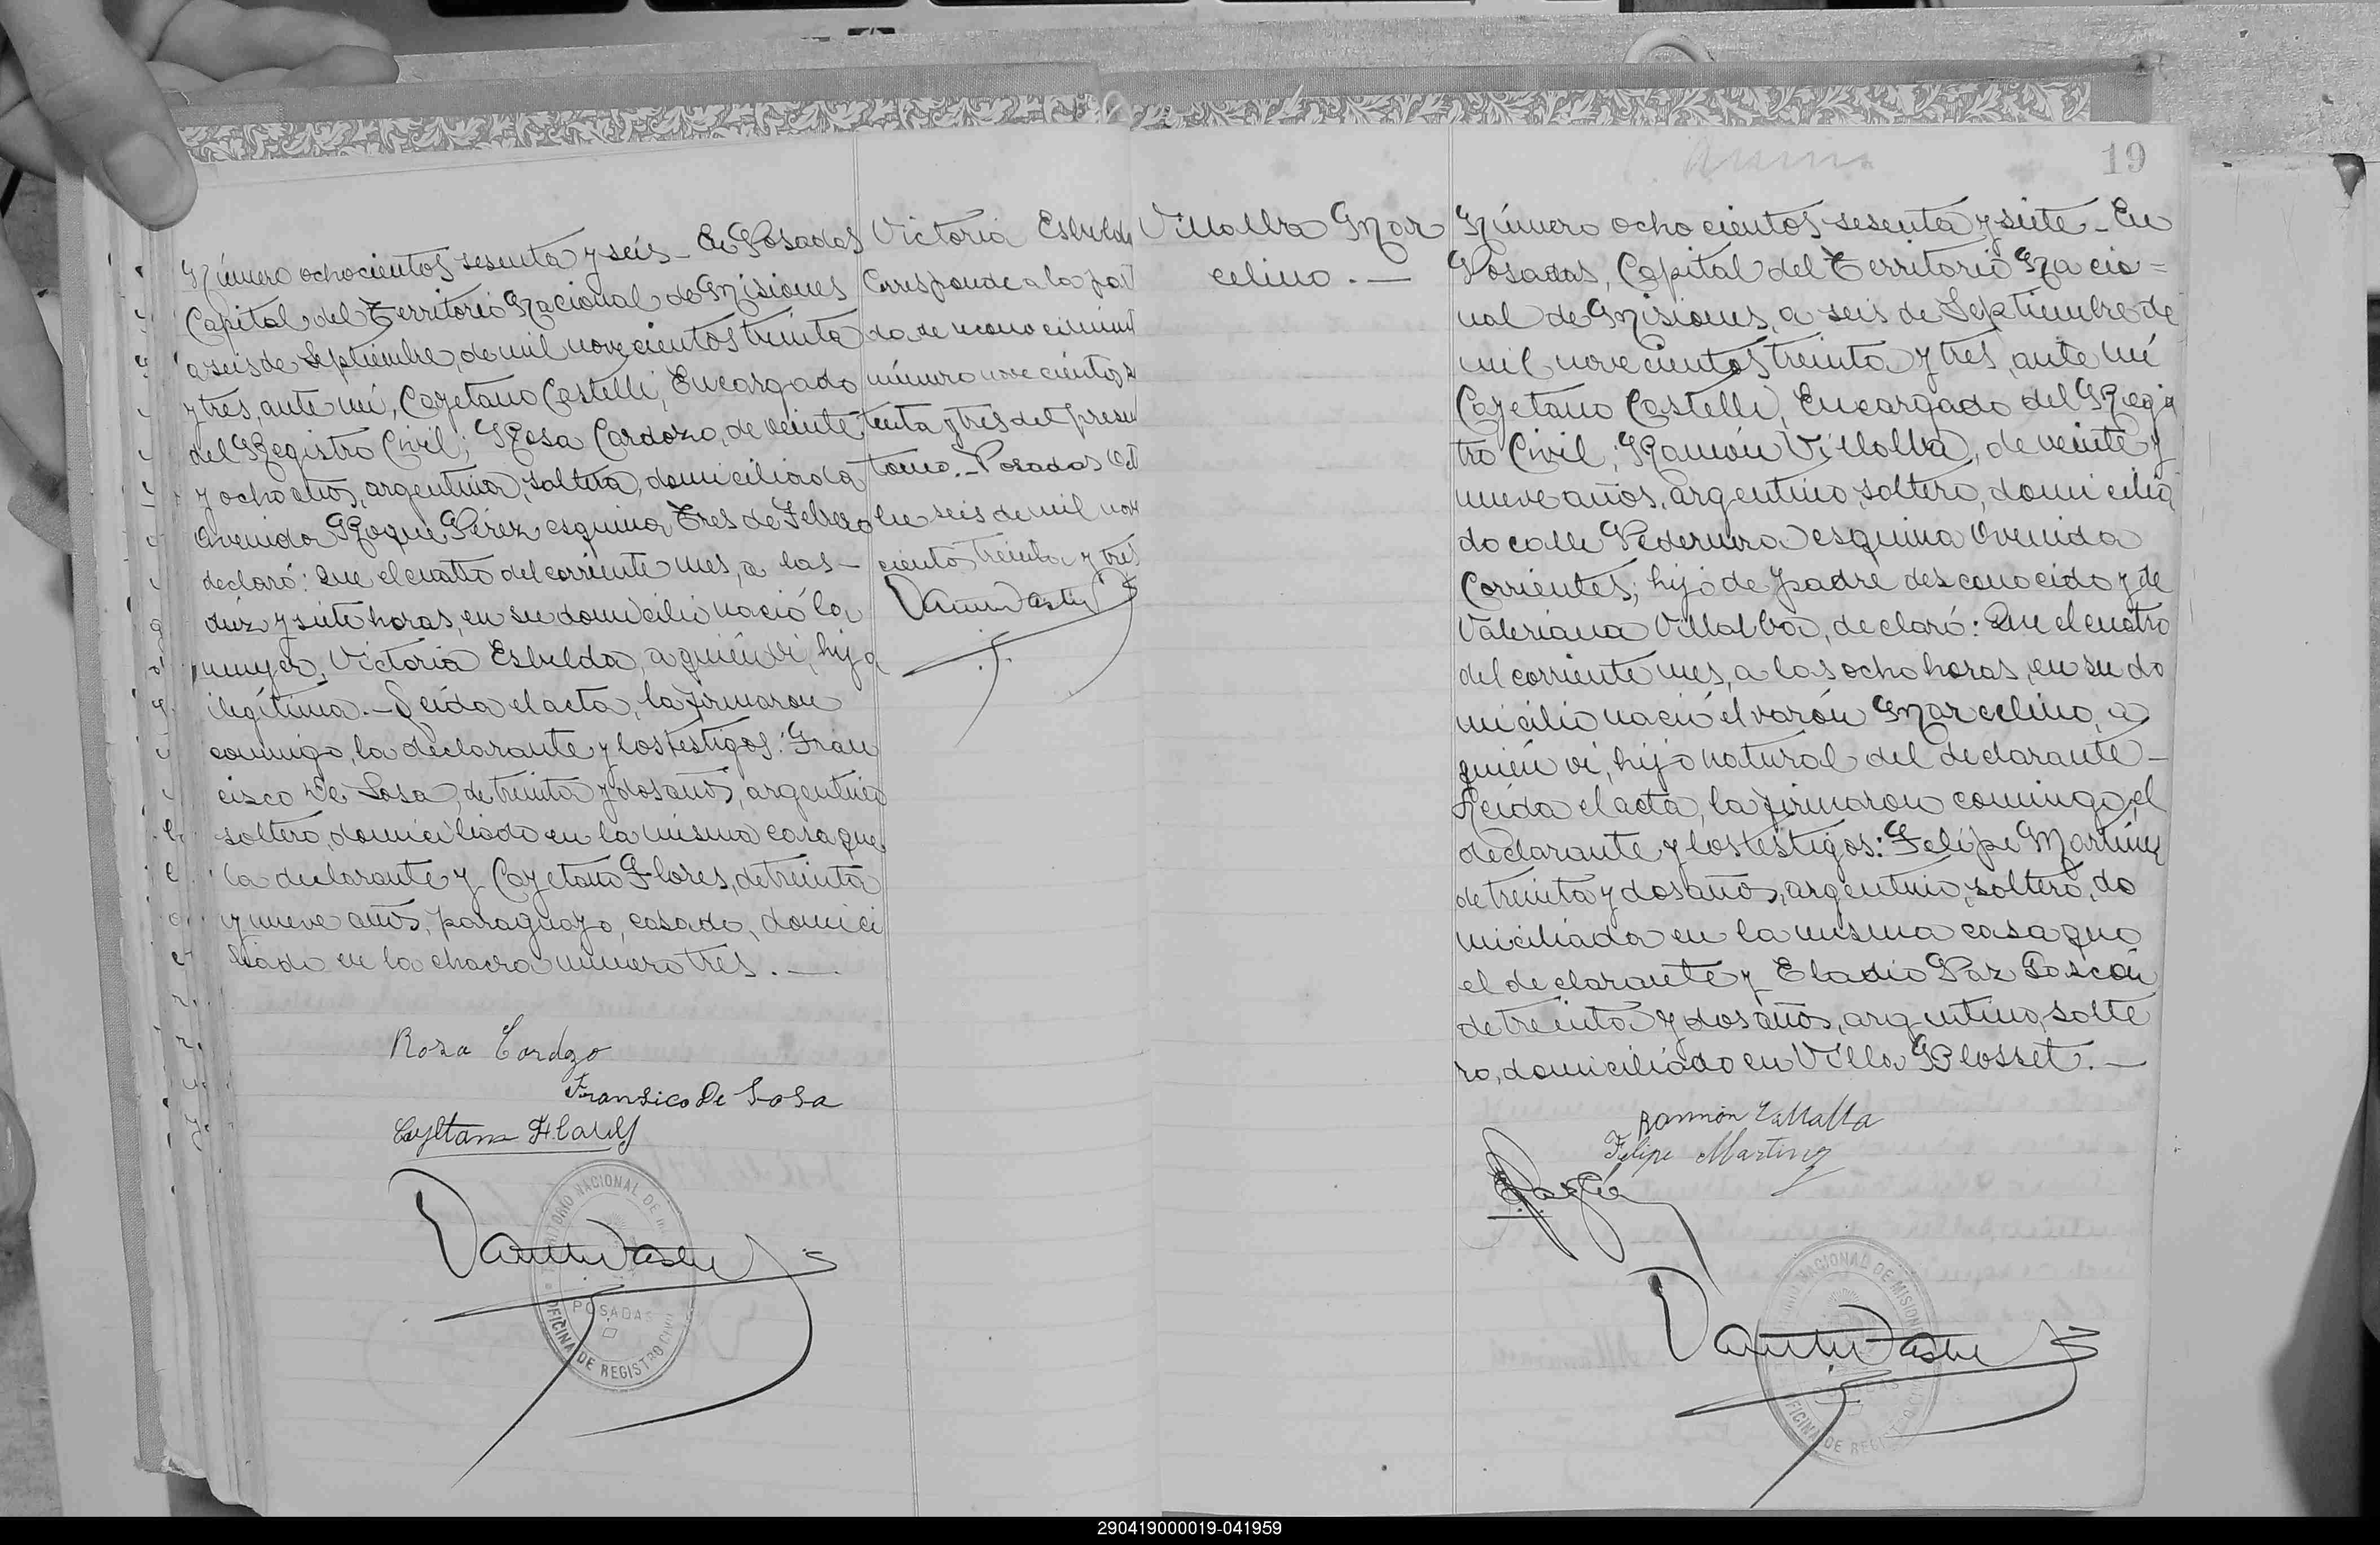 Número ochocientos sesenta y seis - En Posadas
Capital del Territorio Nacional de Misiones
a seis de Septiembre, de mil novecientos treinta
y tres, ante mí, Cayetano Castelli, Encargado
del Registro Civil; Rosa Cardozo, de veinte
y ocho años, argentina, soltera, domiciliada
Avenida Roque Pérez esquina Tres de Febrero
declaró: Que el cuatro del corriente mes, a las -
diez y siete horas, en su domicilio nació la
mujer, Victoria Esbelda, a quién vi, hija
ilegítima. - Leída el acta, la firmaron
conmigo, la declarante y los testigos: Fran
cisco De Sosa, de treinta y dos años, argentino
soltero, domiciliado en la misma casa que
la declarante y Cayetano Flores, de treinta
y nueve años, paraguayo, casado, domici
liado en la chacra número tres. -
Rosa Cardozo
Fransico De Sosa
Cayetano Flores
TERRITORIO NACIONAL DE
POSADAS
OFICINA DE REGISTRO CIVIL
Victoria Esbelda
Corresponde a la par
da de reconocimient
número novecientos
tenta y tres del presen
tomo. - Posadas Oct
bre seis de mil nove
ciento treinta y tres
Villalba Mar
celino. -
19
Número ochocientos sesenta y siete - En
Posadas, Capital del Territorio Nacio=
nal de Misiones, a seis de Septiembre de
mil novecientos treinta y tres, ante mí
Cayetano Castelli, Encargado del Regis
tro Civil; Ramón Villalba, de veinte y
nueve años, argentino, soltero, domicilia
do calle Pedernera esquina Avenida
Corrientes; hijo de padre desconocido y de
Valeriana Villalba, declaró: Que el cuatro
del corriente mes, a las ocho horas, en su do
micilio nació el varón Marcelino, a
quién vi, hijo natural del declarante -
Leída el acta, la firmaron conmigo, el
declarante y los testigos: Felipe Martínez
de treinta y dos años, argentino, soltero, do
miciliado en la misma casa que
el declarante y Eladio Paz
de treinta y dos años, argentino, solte
ro, domiciliado en Villa Blosset. -
Ramón Villalba
Felipe Martinez
NACIONAL DE MISIONES
OFICINA DE REGISTRO
290419000019-041959